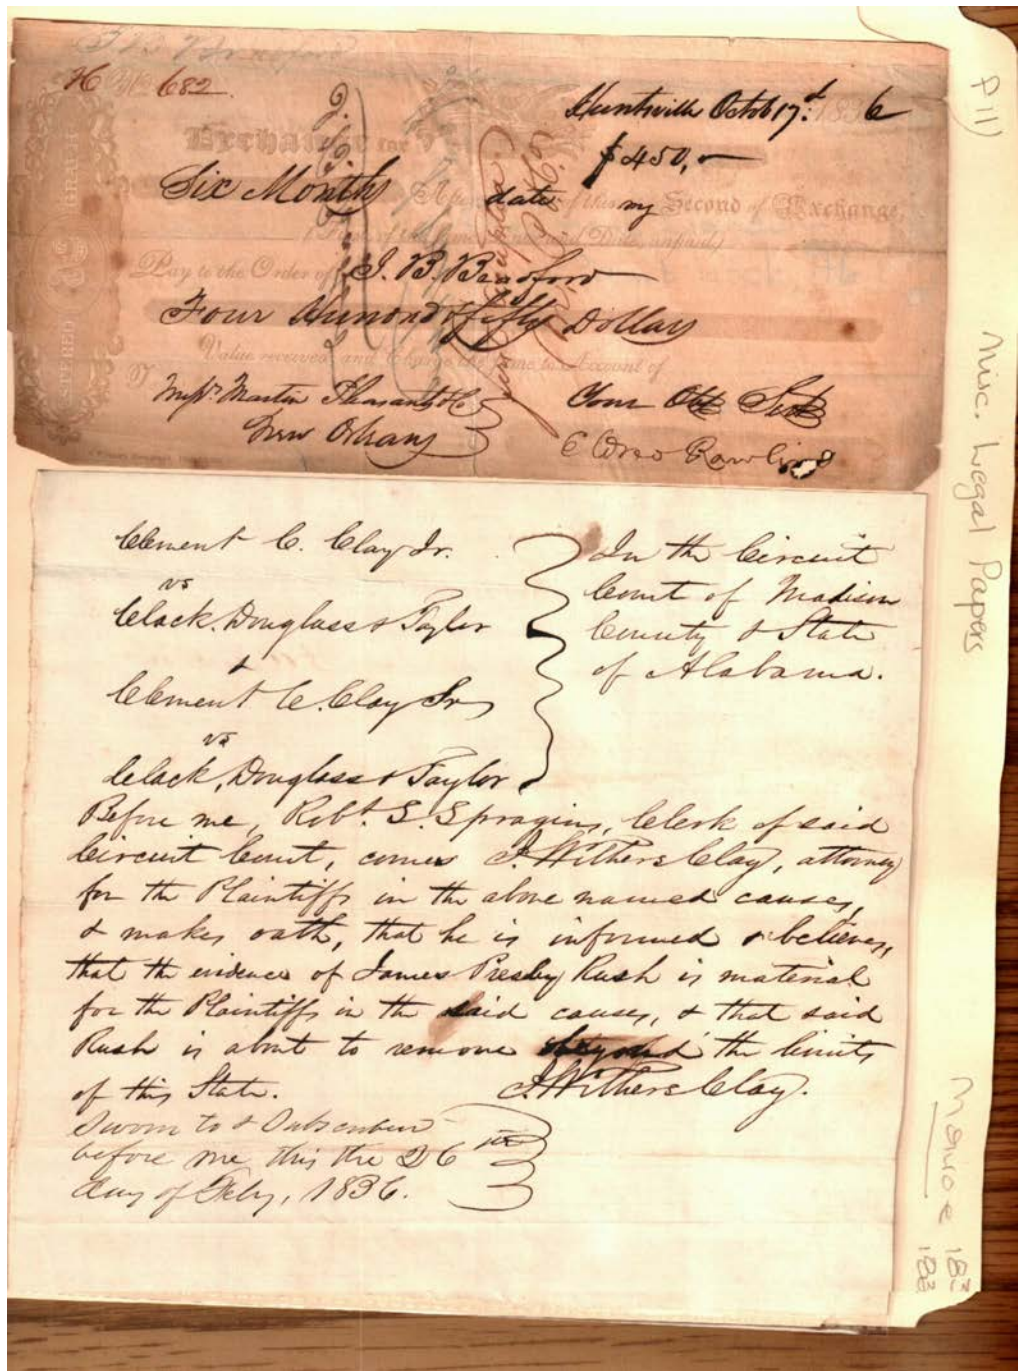 No 682.
Huntsville Octob 17th. 1836
$450,
Exchange for
Six Months After date of this my Second of Exchange,
(First of the same Tenor and Date, unpaid)
Pay to the Order of J. B. Bradford
Four Hundred & fifty Dollars
Value received and Charge the same to Account of
To
Messrs. Martin Pleasants & Co
Your Obt Servt
New Orleans
Rawlins
P11)
Misc. Legal Papers
Monroe 183
183
Clement C. Clay Jr.
vs
Clack, Douglass & Taylor
&
Clement C. Clay Jr
vs
Clack, Douglass & Taylor
In the Circuit
Court of Madison
County & State
of Alabama.
Before me, Robt. S. Spragins, Clerk of said
Circuit Court, comes J. Withers Clay, attorney
for the Plaintiffs in the above named causes,
& makes oath, that he is informed & believes,
that the evidence of James Presley Rush is material
for the Plaintiffs in the said causes, & that said
Rush is about to remove beyond the limits
of this State. J. Withers Clay.
Sworn to & Subscribed
before me this the 26th
day of Feby, 1836.